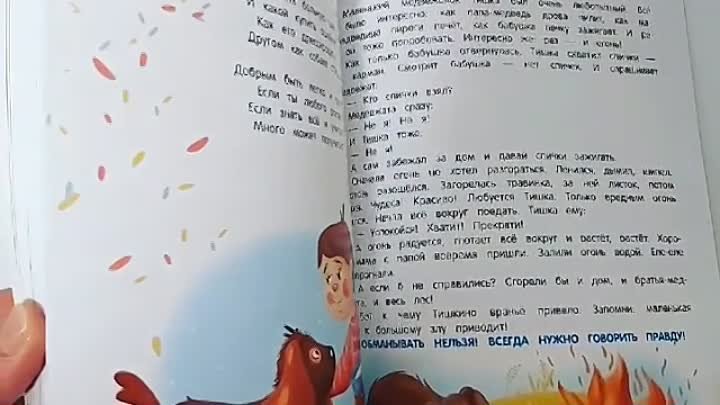 И какой купить
Как его дрессировать
Другом как собаке
Добрым быть легко и
Если ты любого
Если знать всё и
Много может получиться
Маленький медвежонок Тишка был очень любопытный. Всё
было интересно: как папа-медведь дрова рубит, как ма
пироги печёт, как бабушка печку зажигает. И
он тоже попробовать. Интересно же: раз — и огонь!
как только бабушка отвернулась, Тишка схватил спички —
карман. Смотрит бабушка — нет спичек. И спрашивает
— Кто спички взял?
Медвежата сразу:
— Не я! Не я!
И Тишка тоже:
— Не я!
А сам забежал за дом и давай спички зажигать.
Сначала огонь не хотел разгораться. Ленился, дымил, шипел.
разошёлся. Загорелась травинка, за ней листок, потом
Чудеса! Красиво! Любуется Тишка. Только вредным огонь
Начал всё вокруг поедать. Тишка ему:
— Успокойся! Хватит! Прекрати!
А огонь радуется, глотает всё вокруг и растёт, растёт. Хоро-
мама с папой вовремя пришли. Залили огонь водой. Еле-еле
А если б не справились? Сгорели бы и дом, и братья-мед-
и весь лес!
к чему Тишкино враньё привело. Запомни: маленькая
к большому злу приводит!
ОБМАНЫВАТЬ НЕЛЬЗЯ! ВСЕГДА НУЖНО ГОВОРИТЬ ПРАВДУ!